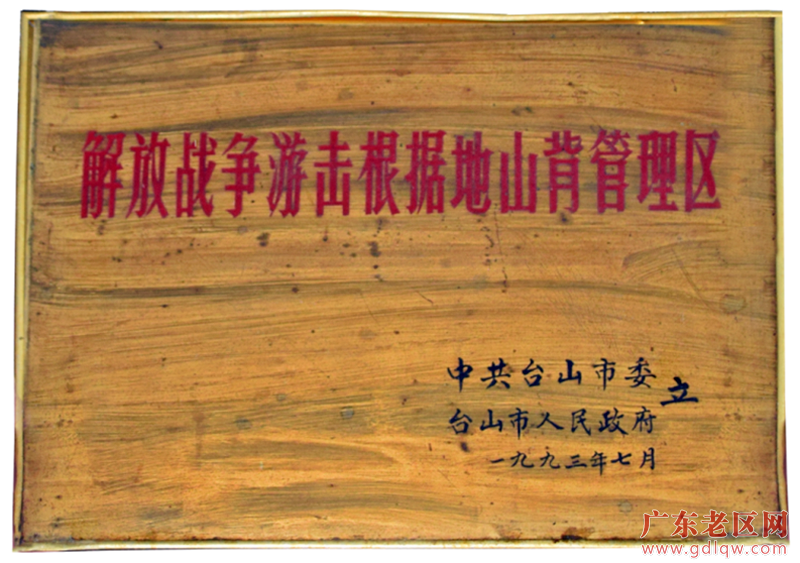 解放战争游击根据地山背管理区
中共台山市委
立
台山市人民政府
一九九三年七月
广东老区网
www.gdlqw.com